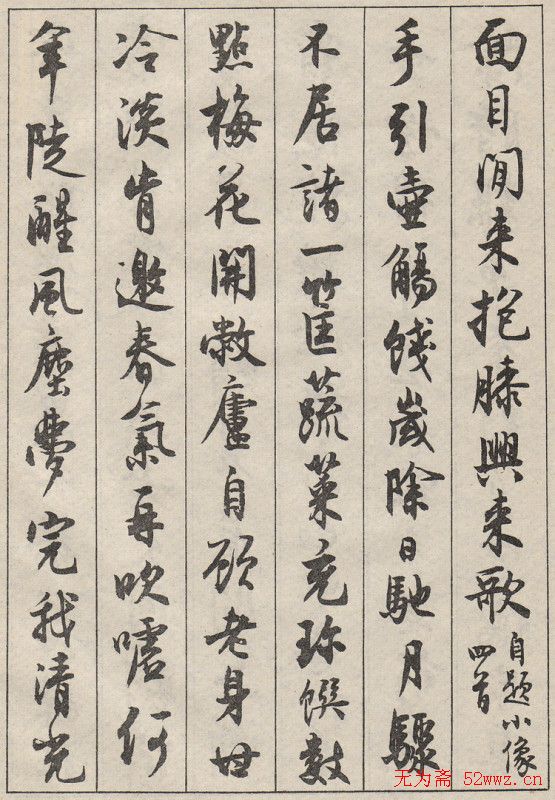 面目閒来抱膝興来歌
自題小像
四首
手引壺觴餞歲除日馳月驟
不居諸一筐蔬菜充珍饌數
點梅花開敝廬自顧老身甘
冷淡肯邀春氣再吹噓何
年陡醒風塵夢完我清光
无为斋 52wwz.cn